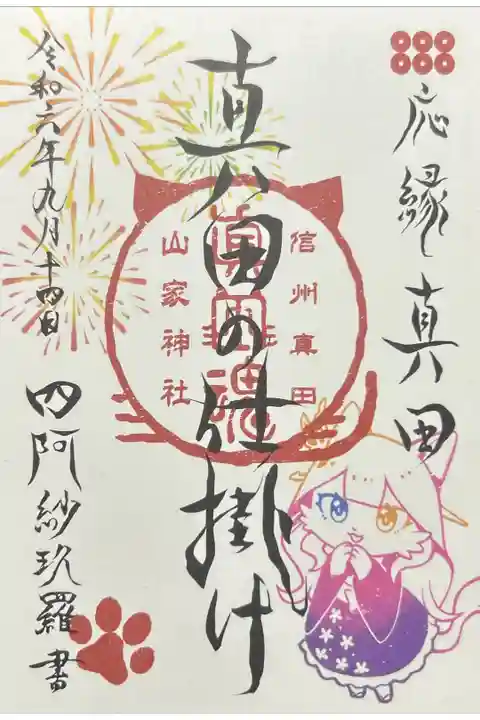 応縁 真田
真田の仕掛け
信州真田
山家神社
令和六年九月十四日
四阿紗玖羅書